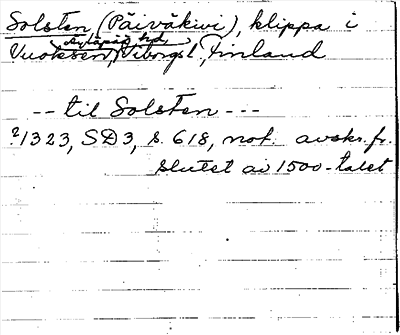 Solsten (Päiväkivi), klippa i
Äyräpää hd,
Vuoksen, Viborgs l, Finland
-- til Solsten ---
?1323, SD3, s. 618, not. avskr. fr.
slutet av 1500-talet